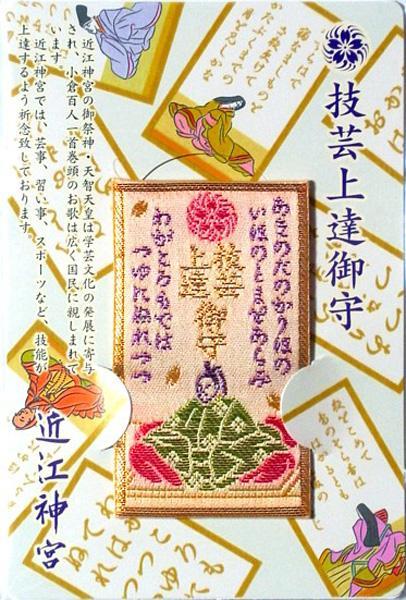 技芸上達御守
近江神宮の御祭神・天智天皇は学芸文化の発展に寄与
され、小倉百人一首巻頭のお歌は広く国民に親しまれて
います。
近江神宮では、芸事、習い事、スポーツなど、技能が
上達するよう祈念致しております。
近江神宮
あきのたのかりほの
いほのとまをあらみ
技芸
上達
御守
わがころもでは
つゆにぬれつつ